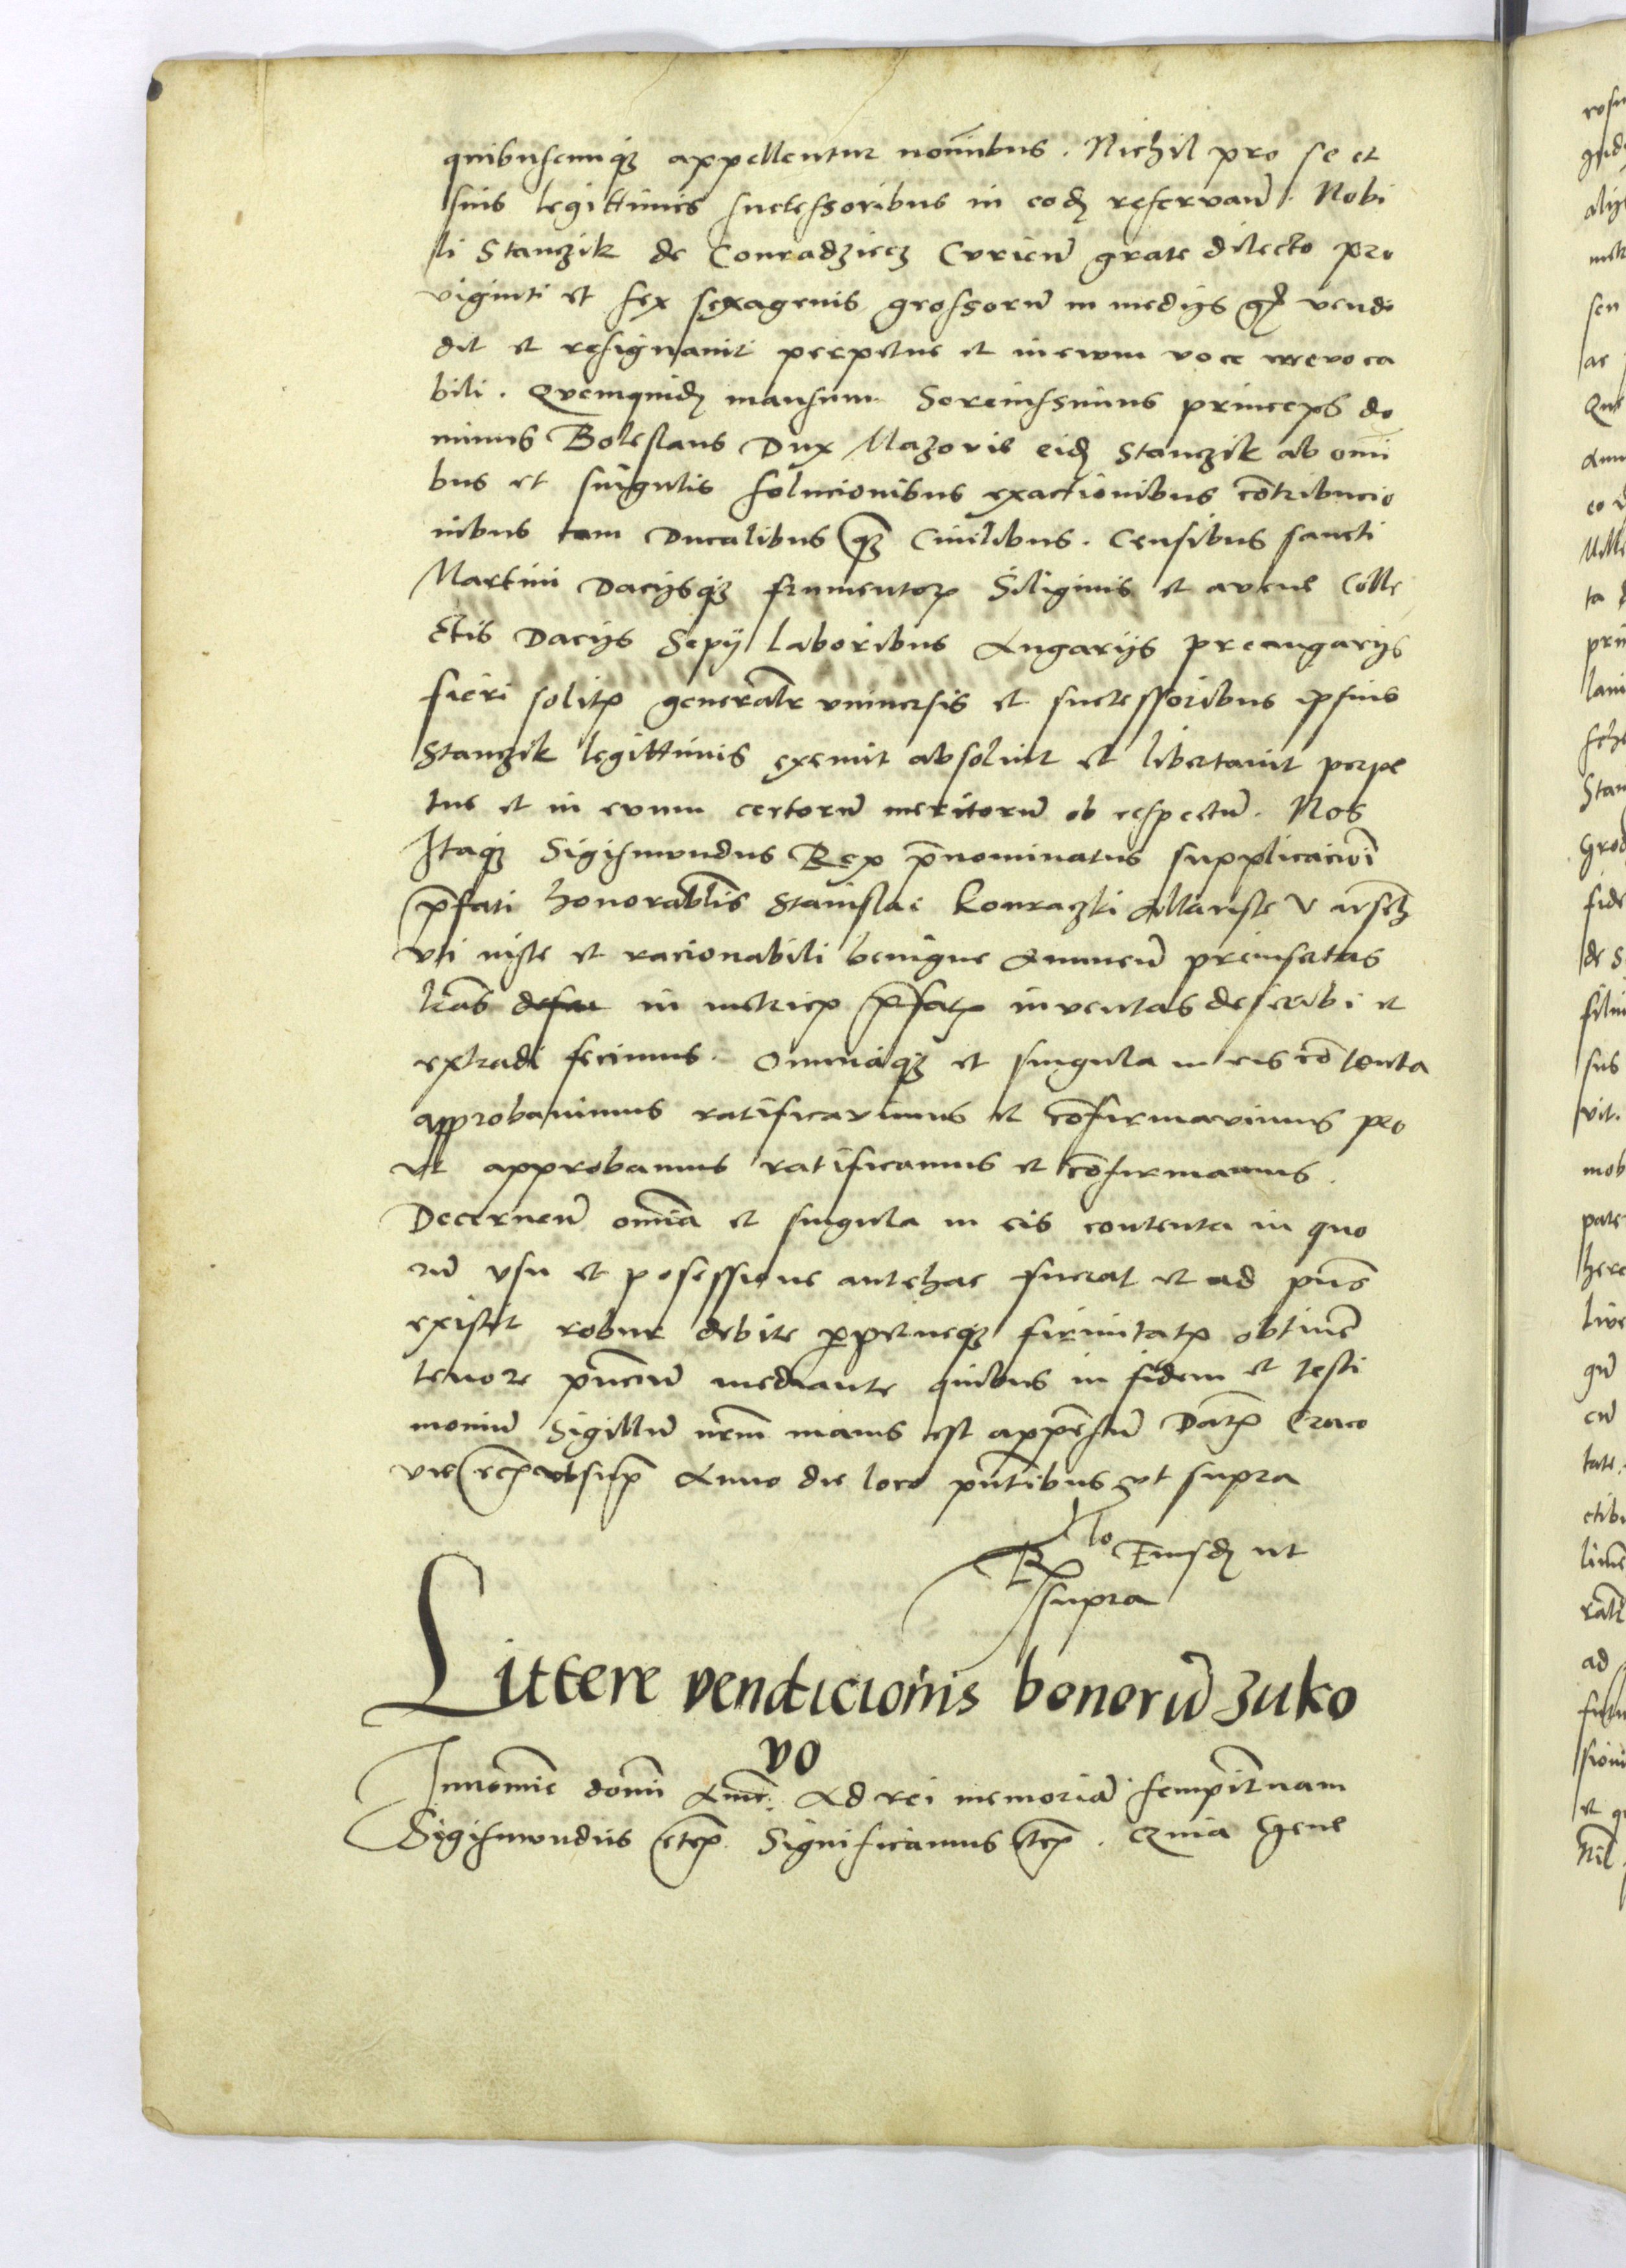 quibuscunq(ue) appellentur nominibus. Nichil pro se et
suis legittimis successoribus in eod(em) reservan(do). Nobi
li Stanczik de Conradziecz Curien(si) grate dilecto pro
viginti et sex sexagenis grossorum in medijs gr(ossis) vendi
dit et resignavit perpetue et in ewm voce irrevoca
bili. Quemquid(em) mansum Serenissimus princeps do
minus Boleslaus Dux Mazovie eid(em) Stanczik ab omni
bus et singulis solucionibus exactionibus contribucio
nibus tam Ducalibus q(uam) Civilibus. Censibus sancti
Martini Dacijsq(ue) frumentor(um) Siliginis et avene Colle
ctis Dacijs Sepij laboribus Angarijs preangarijs
fieri solit(is) generaliter universis et successoribus ipsius
Stanczik legittimis exemit absolvit et libertavit perpe
tue et in evum certorum meritorum ob respectum. Nos
Itaq(ue) Sigismundus Rex prenominatus supplicacioni
prefati honorabilis Stanislai Konraczki
uti iuste et racionabili benigne Annuen(tes) preinsertas
l(ite)ras in metric(is) prefat(is) inventas describi et
extradi fecimus. Omniaq(ue) et singula in eis contenta
approbavimus ratificavimus et confirmavimus pro
ut approbamus ratificamus et confirmamus.
Decernen(tes) omnia et singula in eis contenta in quo
rum usu et posessione antehac fuerat et ad p(rese)ns
existit robur debite perpetueq(ue) firmitat(is) obtinere
tenore p(rese)ncium mediante quibus in fidem et testi
monium Sigillum n(ost)rum maius est appensum Dat(um) Craco
vie Anno die loco p(rese)ntibus ut supra
R(elati)o Eiusd(em) ut
supra
Littere vendicionis bonorum Zuko
vo
In nomine domini Amen. Ad rei memoriam sempiternam
Sigismundus etc. Significamus etc. Quia Gene